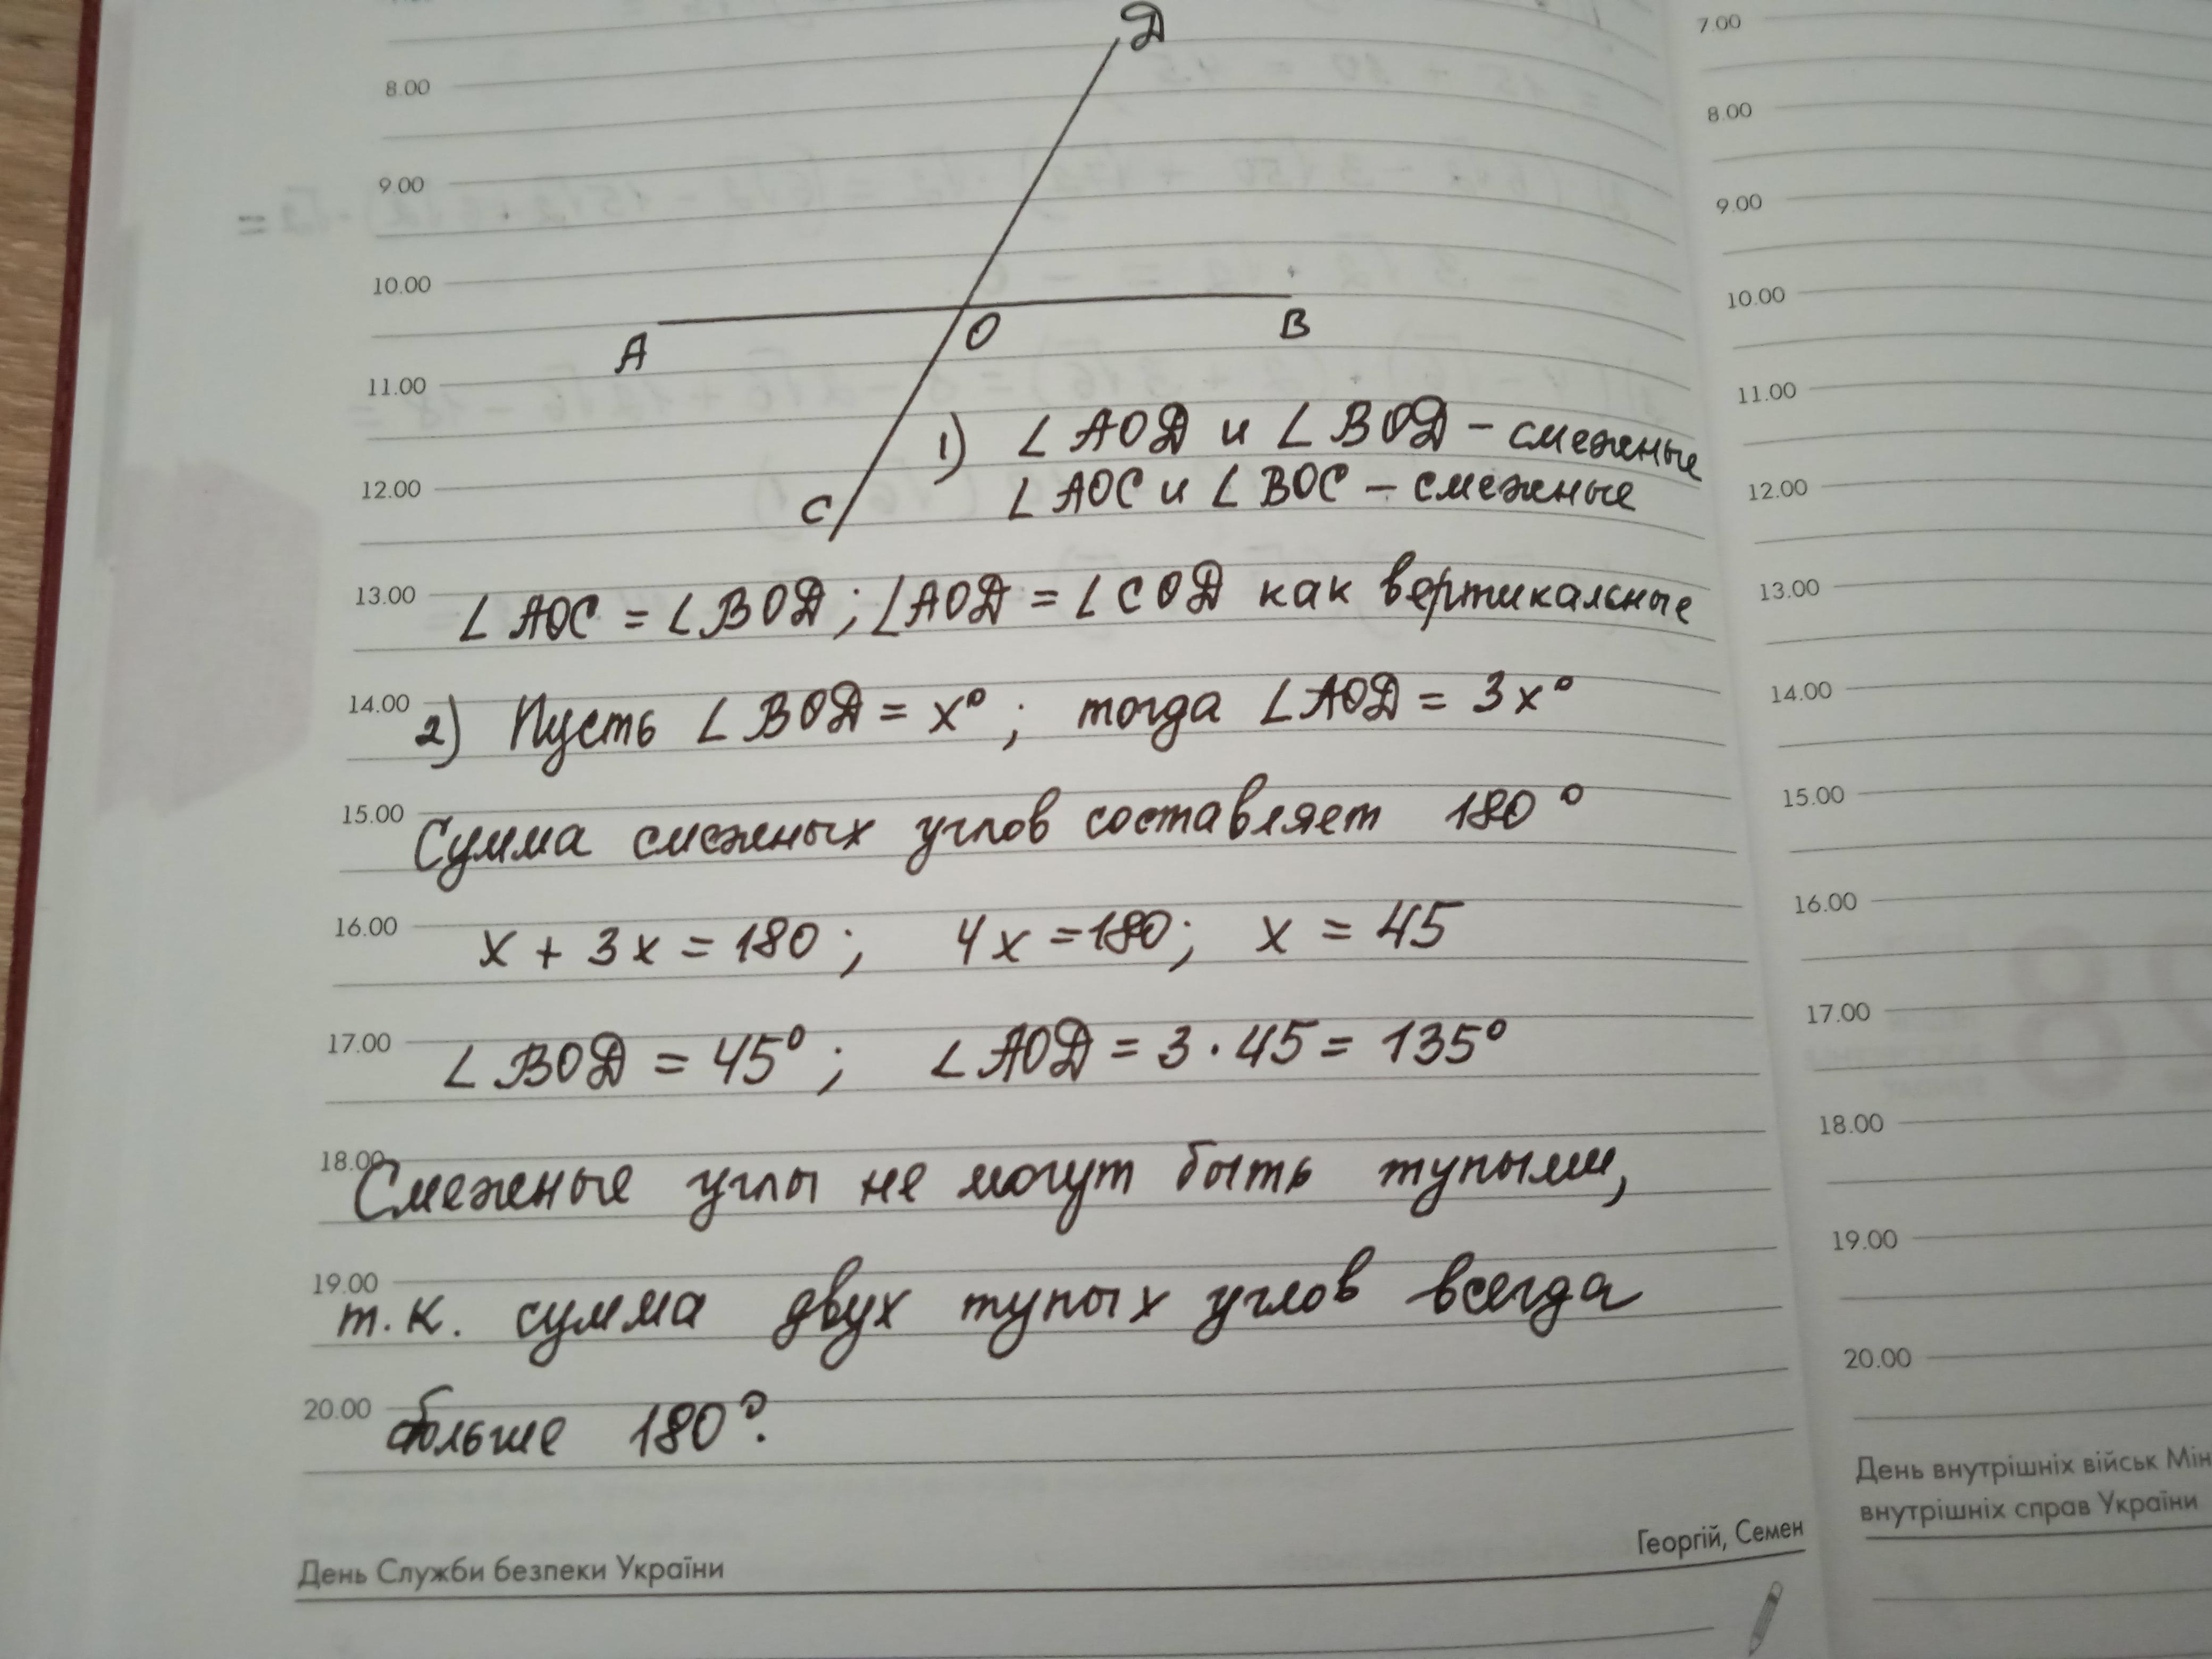 D
8.00
9.00
10.00
A O B
11.00
12.00
C
1) ∠ AOD и ∠ BOD – смежные
∠ AOC и ∠ BOC – смежные
13.00
∠ AOC = ∠ BOD ; ∠ AOD = ∠ COD как вертикальные
14.00
2) Пусть ∠ BOD = x° ; тогда ∠ AOD = 3x°
15.00
Сумма смежных углов составляет 180°
16.00
x + 3x = 180 ; 4x = 180; x = 45
17.00
∠ BOD = 45° ; ∠ AOD = 3 · 45 = 135°
18.00
Смежные углы не могут быть тупыми,
19.00
т.к. сумма двух тупых углов всегда
20.00
больше 180°.
День Служби безпеки України
Георгій, Семен
7.00
8.00
9.00
10.00
11.00
12.00
13.00
14.00
15.00
16.00
17.00
18.00
19.00
20.00
День внутрішніх військ Мін
внутрішніх справ України